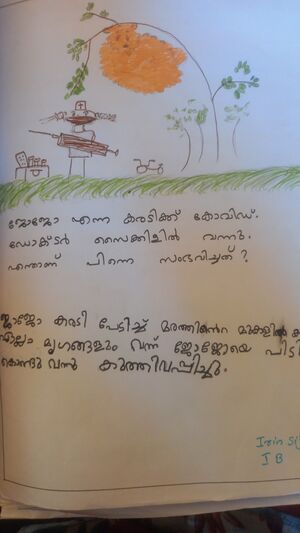 ജോജോ എന്ന കരടിക്ക് കോവിഡ്.
ഡോക്ടർ സൈക്കിളിൽ വന്നു.
എന്താണ് പിന്നെ സംഭവിച്ചത്?
ജോജോ കരടി പേടിച്ച് മരത്തിൻെറ മുകളിൽ
എല്ലാം മൃഗങ്ങളും വന്ന് ജോജോയെ പിടി
കൊണ്ടുവന്നു കുത്തിവപ്പിച്ചു.
Irin
I B